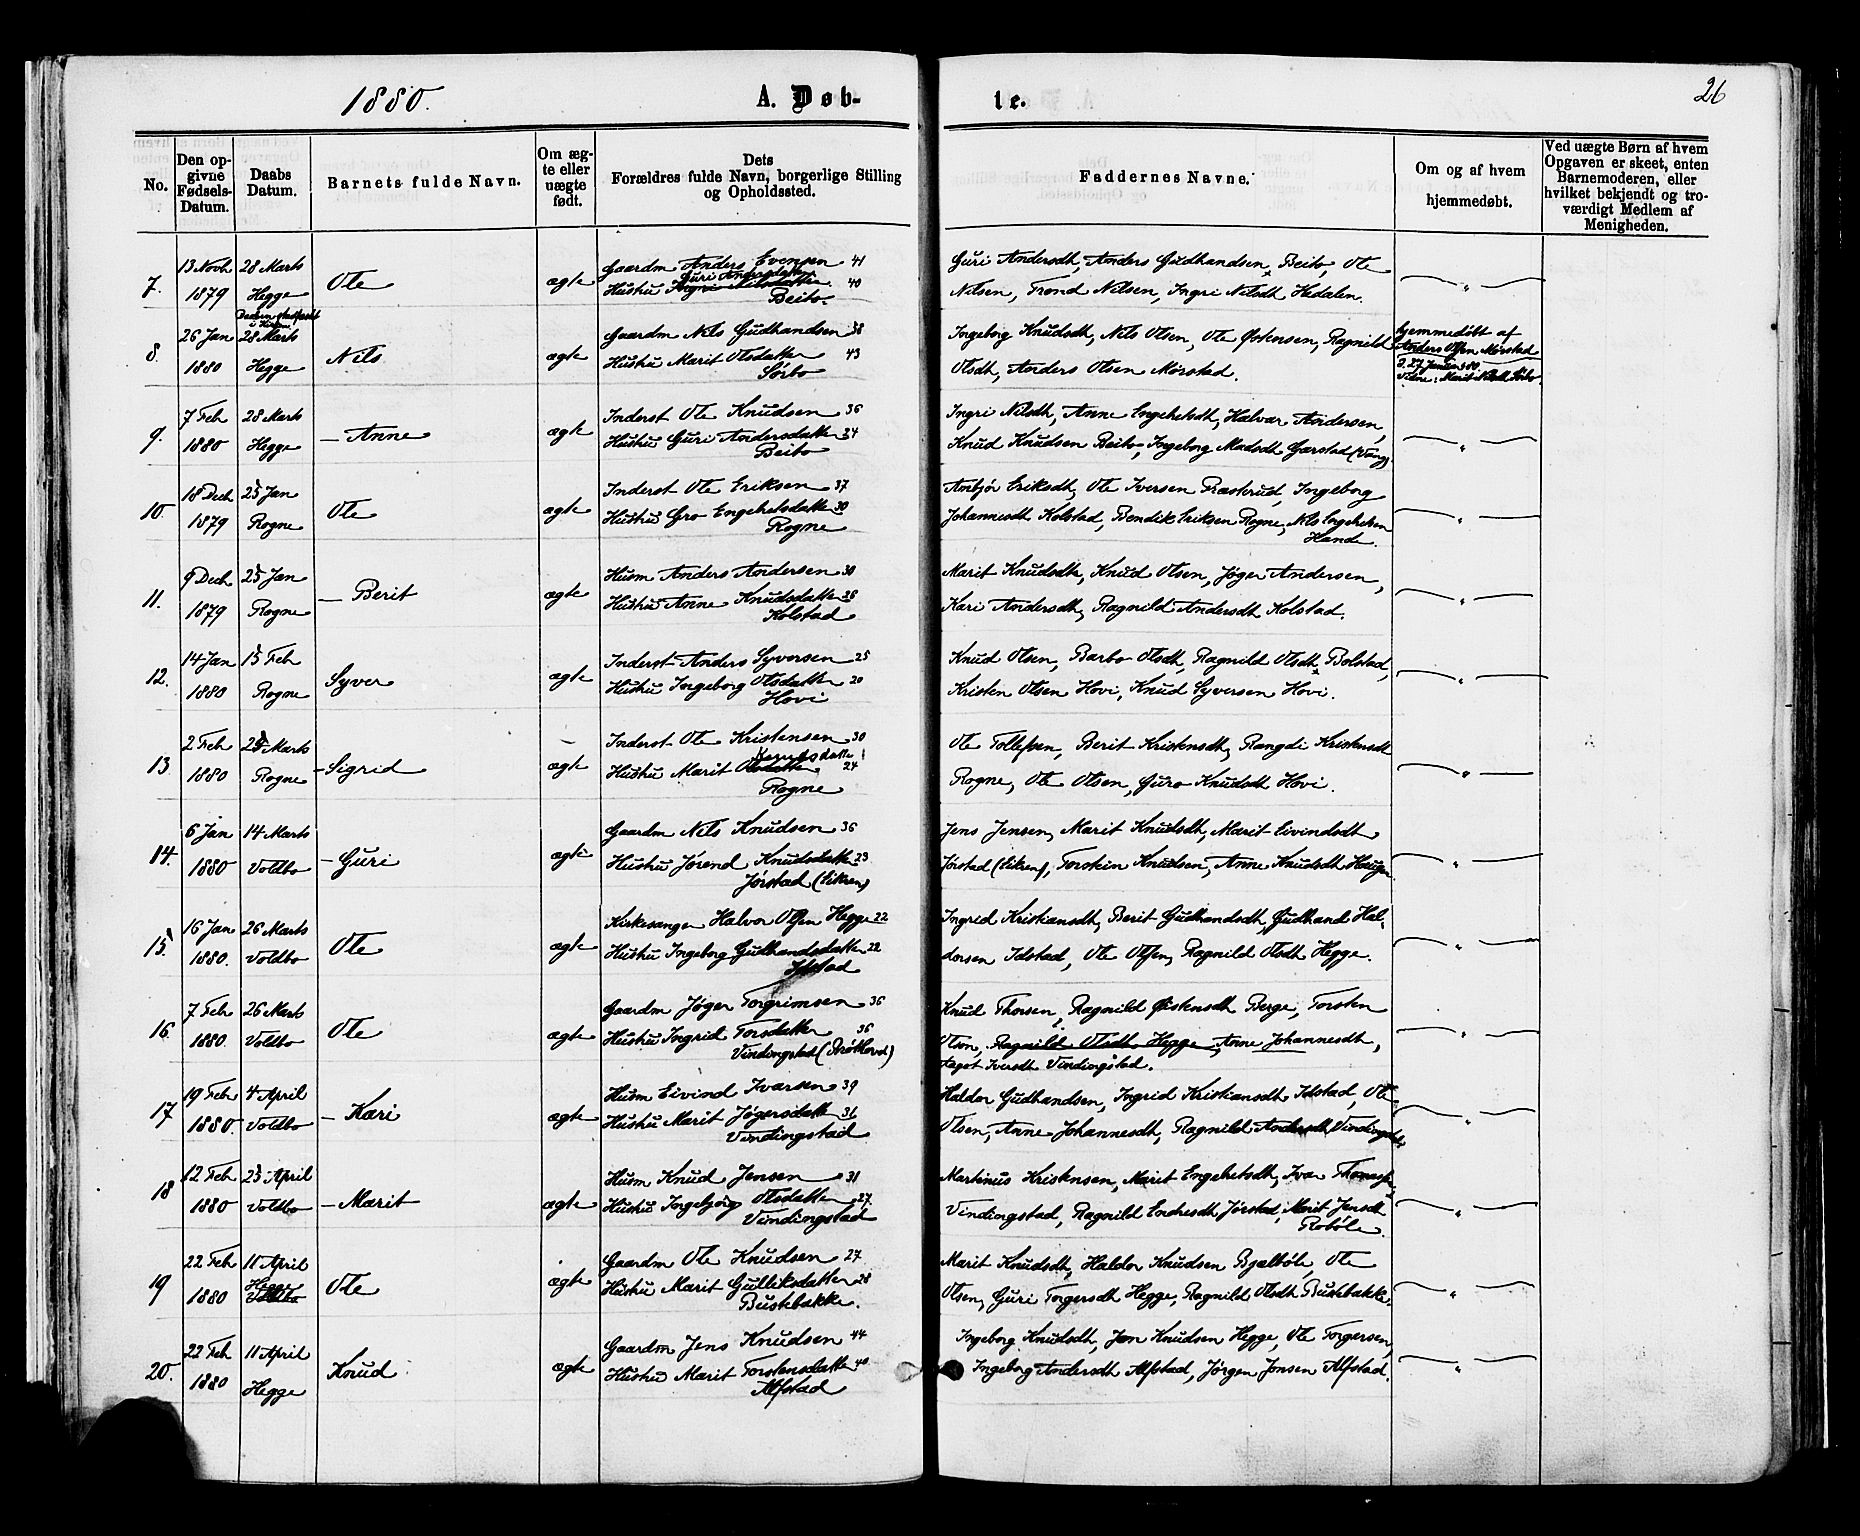 1880.
A. Døb-
te.
26
No.
Den op-
givne
Fødsels-
Datum.
Daabs
Datum.
Barnets fulde Navn.
Om æg-
te eller
uægte
født.
Dets
Forældres fulde Navn, borgerlige Stilling
og Opholdssted.
Faddernes Navne.
Om og af hvem
hjemmedøbt.
Ved uægte Børn af hvem
Opgaven er skeet, enten
Barnemoderen, eller
hvilket bekjendt og tro-
værdigt Medlem af
Menigheden.
7. 13 Novb 28 Marts Ole ægte Gaardm Anders Evensen 41 Guri Andersdt, Anders Gudhandsen, Beito, Ole
Guri Andersdatter
1879 Hegge Hustru Ingri Nilsdatter 40 Nilsen, Trond Nilsen, Ingri Nilsdt Hedalen. "
Beito
8. 26 Jan 28 Marts Nils ægte Gaardm Nils Gudhandsen 38 Ingeborg Knudsdt, Nils Olsen, Ole Østensen, Ragnild hjemmedøbt af
Anders Olsen Mørstad
1880 Hegge Hustru Marit Olsdatter 43 Olsdt, Anders Olsen Mørstad. d. 27 Januar 80
Sørbo Vidne: Marit Sørbo.
9. 7 Feb 28 Marts — Anne ægte Inderst Ole Knudsen 36 Ingri Nilsdt, Anne Engebetsdt, Halvar Andersen,
1880 Hegge Hustru Guri Andersdatter 34 Knud Knudsen Beito, Ingeborg Madsdt Garstad (Vang). "
Beito
10. 18 Decb 25 Jan Ole ægte Inderst Ole Eriksen 37 Ambjør Eriksdt, Ole Iversen Præstrud, Ingeborg
1879 Rogne Hustru Gro Engebetsdatter 30 Johannesdt Kolstad, Bendik Eriksen Rogne, Nils Engebetsen "
Rogne Hande.
11. 9 Decb 25 Jan — Berit ægte Husm Anders Andersen 30 Marit Knudsdt, Knud Olsen, Jøger Andersen,
1879 Rogne Hustru Anne Knudsdatter 28 Kari Andersdt, Ragnild Andersdt Kolstad. "
Kolstad
12. 14 Jan 15 Feb Syver ægte Inderst Anders Syversen 25 Knud Olsen, Barbo Olsdt, Ragnild Olsdt Bolstad,
1880 Rogne Hustru Ingeborg Olsdatter 20 Kristen Olsen Hovi, Knud Syversen Hovi. "
Hovi
13. 2 Feb 25 Marts — Sigrid ægte Inderst Ole Kristensen 30 Ole Tollefsen, Berit Kristensdt, Rangdi Kristensdt
1880 Rogne Hustru Marit Olsdatter 24 Rogne, Ole Olsen, Guro Knudsdt Hovi. "
Rogne
14. 6 Jan 14 Marts — Guri ægte Gaardm Nils Knudsen 36 Jens Jensen, Marit Knudsdt, Marit Eivindsdt
1880 Voldbo Hustru Jørend Knudsdatter 23 Jørstad (Eikren), Torstein Knudsen, Anne Knudsdt Haugen "
Jørstad (Eikren)
15. 16 Jan 26 Marts Ole ægte Kirkesanger Halvor Olsen Hegge 22 Ingrid Kristiansdt, Berit Gudhandsdt, Gudhand Hal-
1880. Voldbo Hustru Ingeborg Gudhandsdatter 22 dorsen Idstad, Ole Olsen, Ragnild Olsdt Hegge. "
Idstad
16. 7 Feb 26 Marts Ole ægte Gaardm Jøger Torgrimsen 36 Knud Thorsen, Ragnild Østensdt Berge, Torsten
1880. Voldbo Hustru Ingrid Torsdatter 36 Olsen, Ragnild Olsdt Hegge, Anne Johannesdt, "
Vindingstad Iversdt Vindingstad.
17 19 Feb 4 April — Kari ægte Husm Eivind Ivarsen 39 Haldor Gudhandsen, Ingrid Kristiansdt Idstad, Ole
1880. Voldbo Hustru Marit Jøgersdatter 31 Olsen, Anne Johannesdt, Ragnild Andersdt Vindingstad. "
Vindingstad
18 12 Feb 25 April — Marit ægte Husm Knud Jensen 31 Martinus Kristensen, Marit Engebetsdt, Ivar
1880 Voldbo Hustru Ingebjørg Olsdatter 27 Vindingstad, Ragnild Endresdt Jørstad, Marit Jensdt "
Vindingstad Robøle.
19 22 Feb 11 April Ole ægte Gaardm Ole Knudsen 27 Marit Knudsdt, Haldor Knudsen Bjelbøle, Ole
Hegge
1880 Voldbo Hustru Marit Gulliksdatter 28 Olsen, Guri Torgersdt Hegge, Ragnild Olsdt Bustebakke. "
Bustebakke.
20. 22 Feb 11 April Knud ægte Gaardm Jens Knudsen 44 Ingeborg Knudsdt, Jon Knudsen Hegge, Ole Torgersen,
1880 Hegge Hustru Marit Torstensdatter 40 Ingeborg Andersdt Alfstad, Jørgen Jonsen Alfstad. "
Alfstad